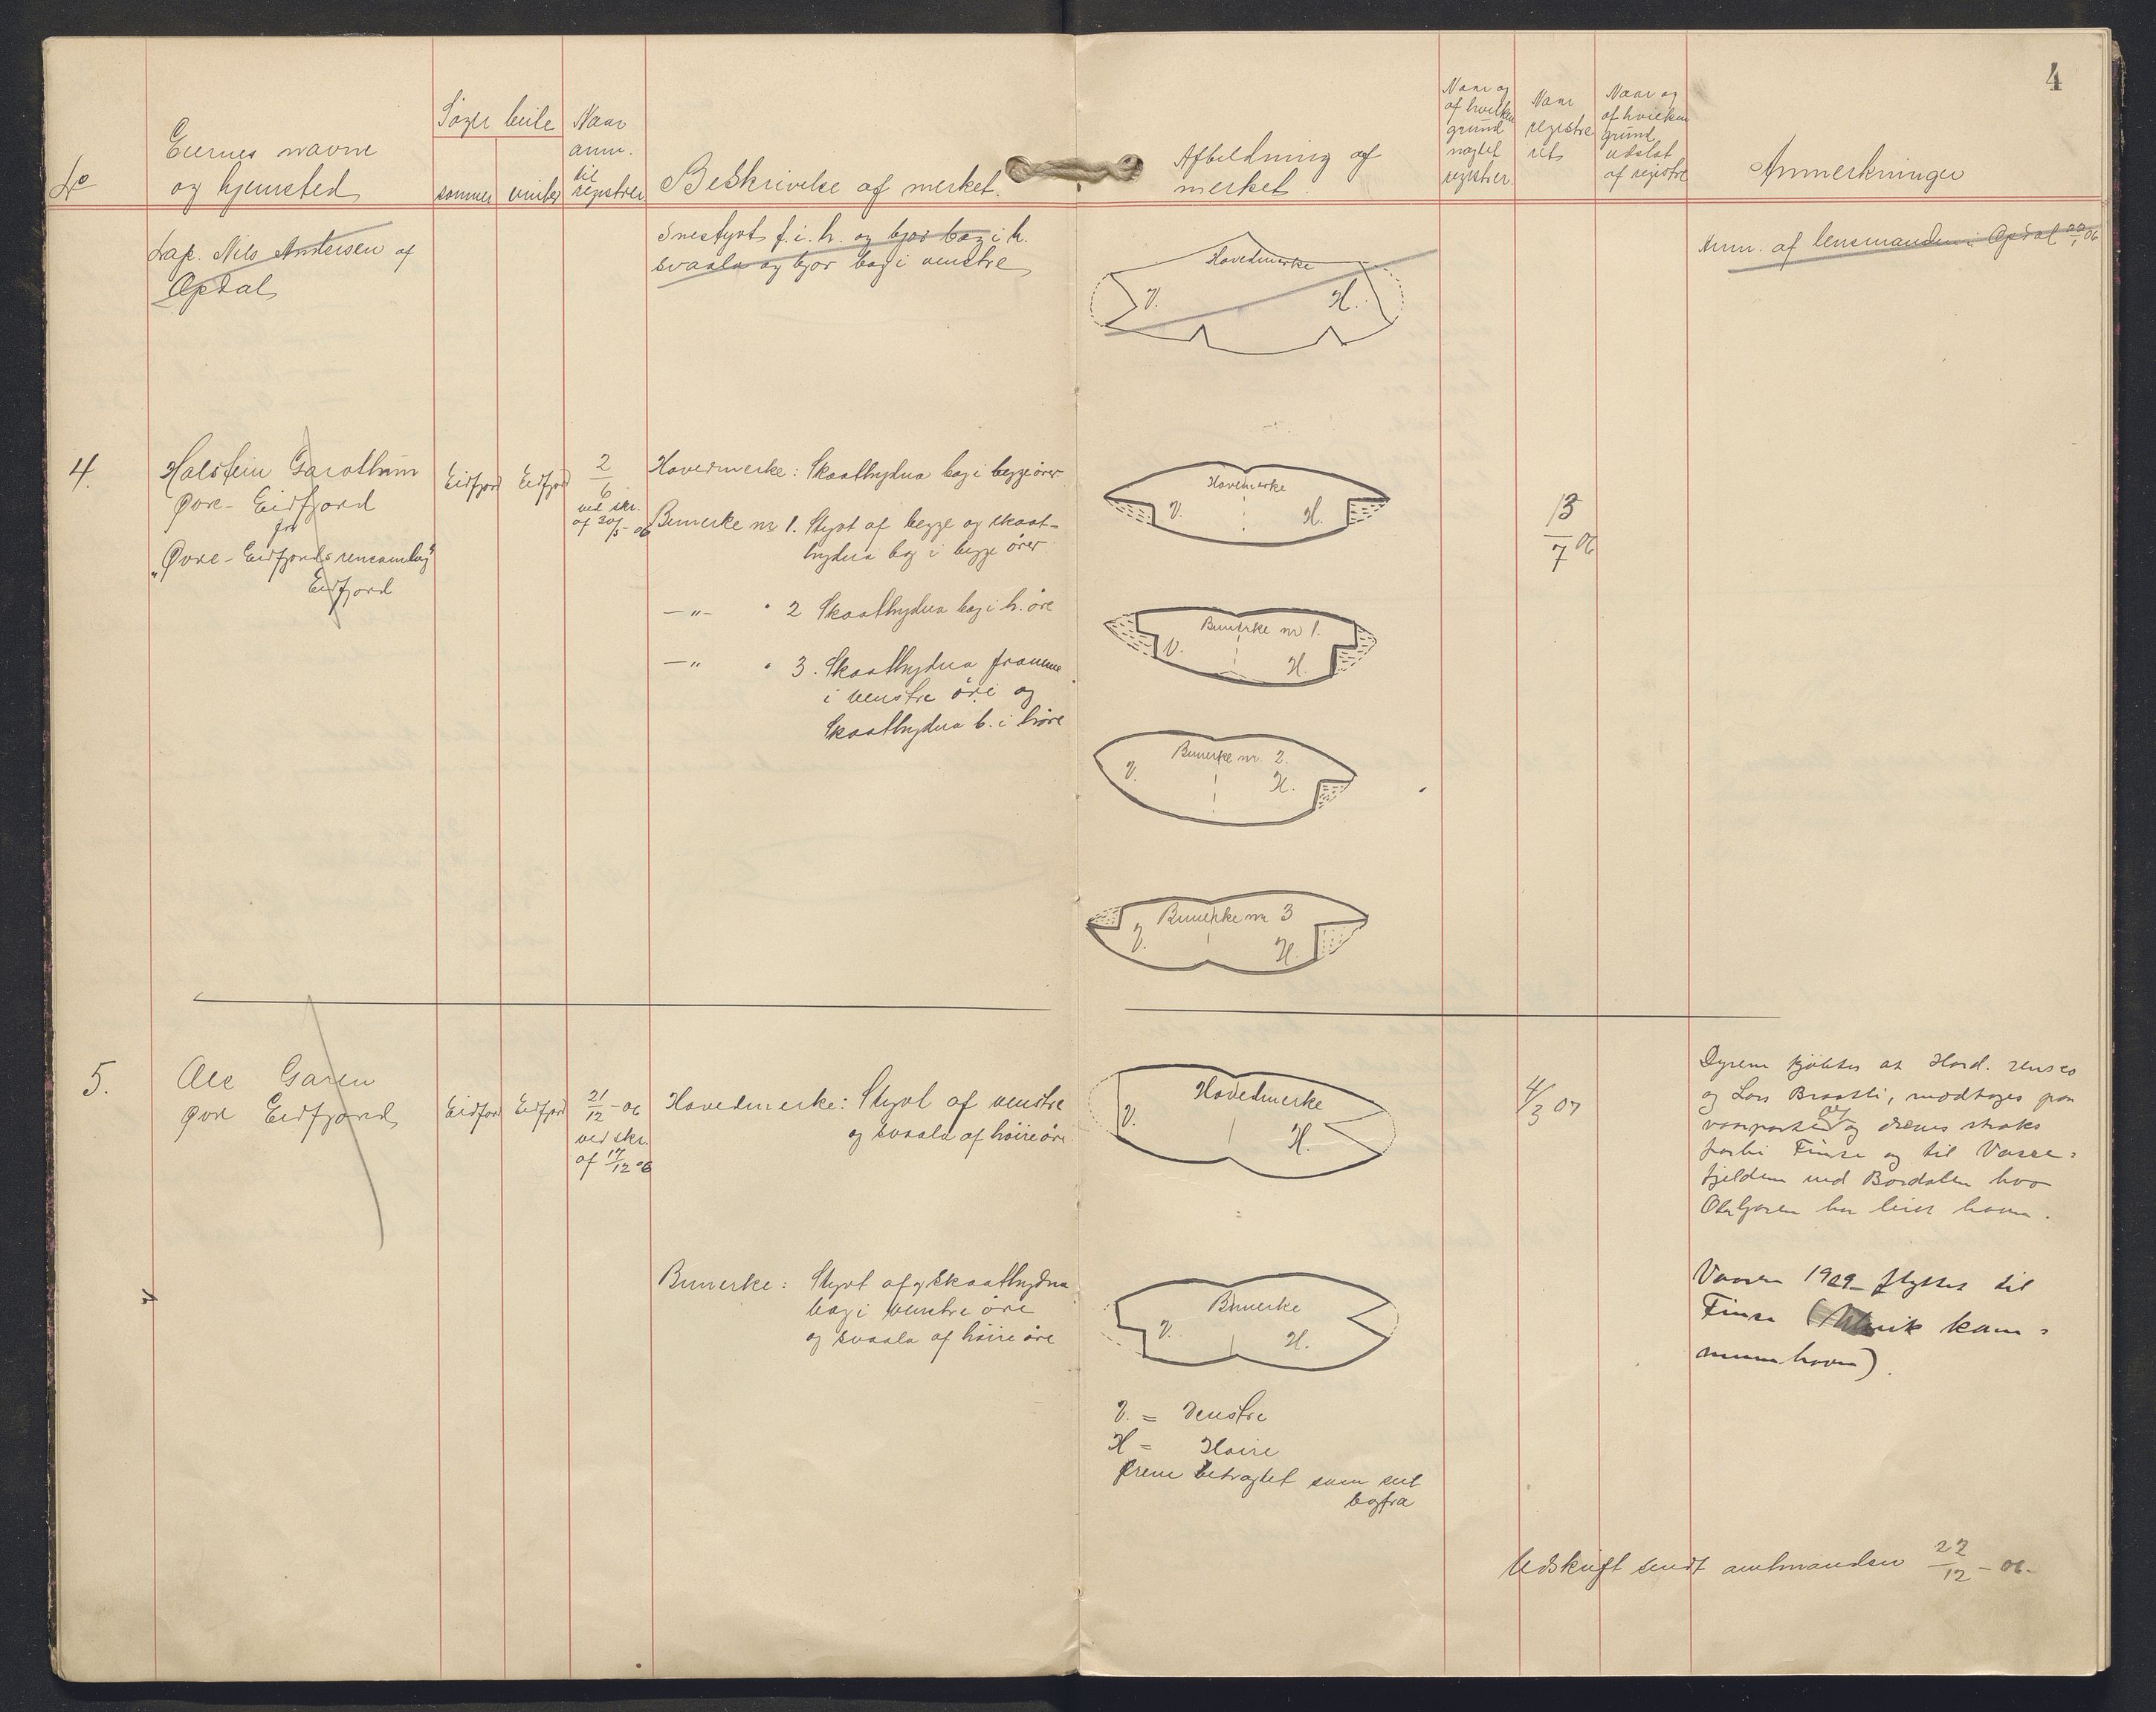 4
No
Eiernes navne
og hjemsted
Søger beite
sommer
vinter
Naar
anm.
til
registrer.
Beskrivelse af merket.
Afbildning af
merket.
Naar og
af hvilken
grund
nægtet
registrer.
Naar
registre
rets
Naar og
af hvilken
grund
udslet
af registre
Anmerkninger
Lap. Nils Andersen af
Opdal
Snestyvt f. i. h. og bjor bag i h.
svaala og bjor bag i venstre
Hovedmerke
V. H.
Anm. af lensmanden i Opdal 22/1 06
4.
Halstein Garathun
Øvre- Eidfjord
for
"Øvre- Eidfjords rensamlag"
Eidfjord
Eidfjord
Eidfjord
2/6
ved skr.
af 30/5- 06
Hovedmerke: Skaathydna bag i begge ører
Bimerke nr 1. Styvt af begge og skaat-
hydna bag i begge ører
—"— " 2 Skaathydna bag i h. øre
—" " 3. Skaathydna framme
i venstre øre og
Skaathydna b. i høire
Hovedmerke
V. H.
Bimerke nr 1.
V. H.
Bimerke nr. 2.
V. H.
Bimerke nr 3
V. H.
13/7 06
5.
Ole Garen
Øvre Eidfjord
Eidfjord
Eidfjord
21/12 - 06
ved skr.
af 17/12 06
Hovedmerke: Styvt af venstre
og svaala af høire øre
Bimerke: Styvt af og Skaathydna
bag i venstre øre
og svaala af høire øre
Hovedmerke
V. H.
Bimerke
V. H.
V. = Venstre
H = Høire
Ørene betragtet som seet
bagfra
4/3 07
Dyrene kjøbtes at Hard. rensco
og Lars Braatli, modtages paa
og drives straks
forbi Finse og til Vasse-
fjeldene ved Bordalen hvor
Ole Garen har leiet havn.
Vaaren 1909 flyttet til
Finse (Ulvik kom-
munehavn).
Udskrift sendt amtmanden 22/12 - 06-